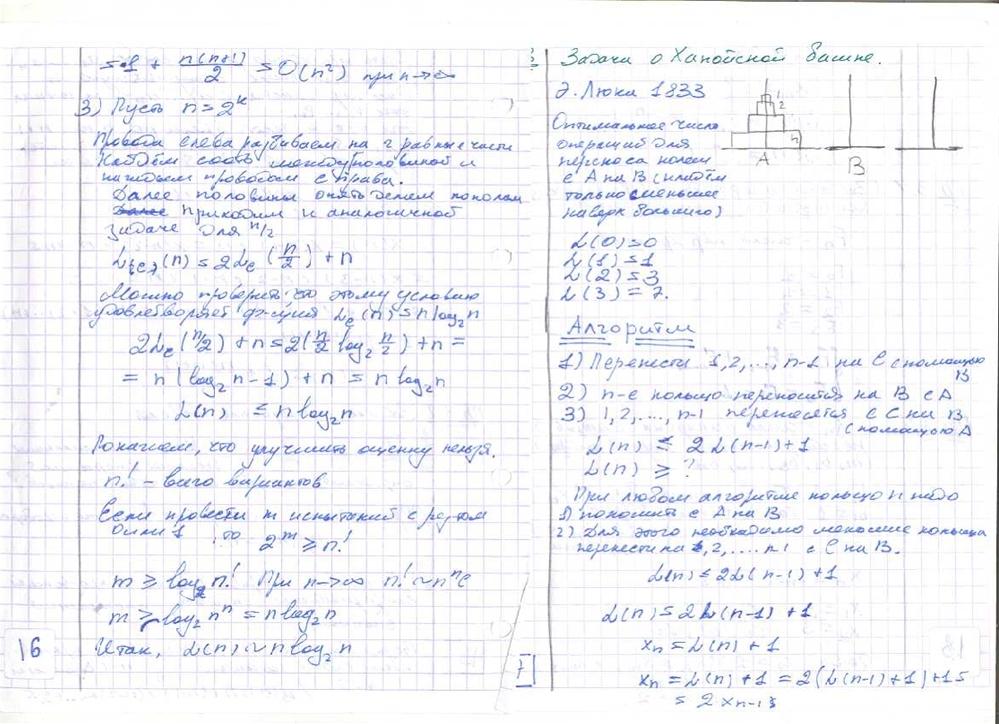 ≤ 1 + n(n+1)/2 = O(n²) при n→∞
3) Пусть n = 2ᵏ
Провода слева разбиваем на 2 равные части
Найдём соотв между половиной и
каждым проводом справа.
Далее половины опять делим пополам
Приходим к аналогичной
задаче для n/2
(n) = 2L_c (n/2) + n
Можно проверить что этому условию
удовлетворяет ф-ция L_c(n) = n log₂ n
2L_c(n/2) + n = 2(n/2 log₂ n/2) + n =
= n (log₂ n - 1) + n = n log₂ n
L(n) ≤ n log₂ n
Покажем, что улучшить оценку нельзя.
n! - всего вариантов
Если провести m испытаний с рез-том
0 или 1, то 2ᵐ ≥ n!
m ≥ log₂ n! При n→∞
m ≥ log₂ nⁿ = n log₂ n
Итак, L(n) ~ n log₂ n
16
Задача о Ханойской башне.
Э. Люка 1833
1
2
n
A
B
Оптимальное число
операций для
переноса колец
с A на B (кладём
только меньшее
наверх большего)
L(0) = 0
L(1) = 1
L(2) = 3
L(3) = 7.
Алгоритм
1) Перенести 1,2,...,n-1 на C с помощью
B
2) n-е кольцо переносится на B с A
3) 1,2,...,n-1 переносятся с C на B
с помощью A
L(n) ≤ 2L(n-1)+1
L(n) ≥ ?
При любом алгоритме кольцо n надо
1) положить с A на B
2) Для этого необходимо кольца
перенести 1,2,...,n-1 с C на B.
L(n) ≤ 2L(n-1)+1
L(n) = 2L(n-1)+1
xₙ = L(n)+1
xₙ = L(n)+1 = 2(L(n-1)+1)+1=
= 2xₙ₋₁
7